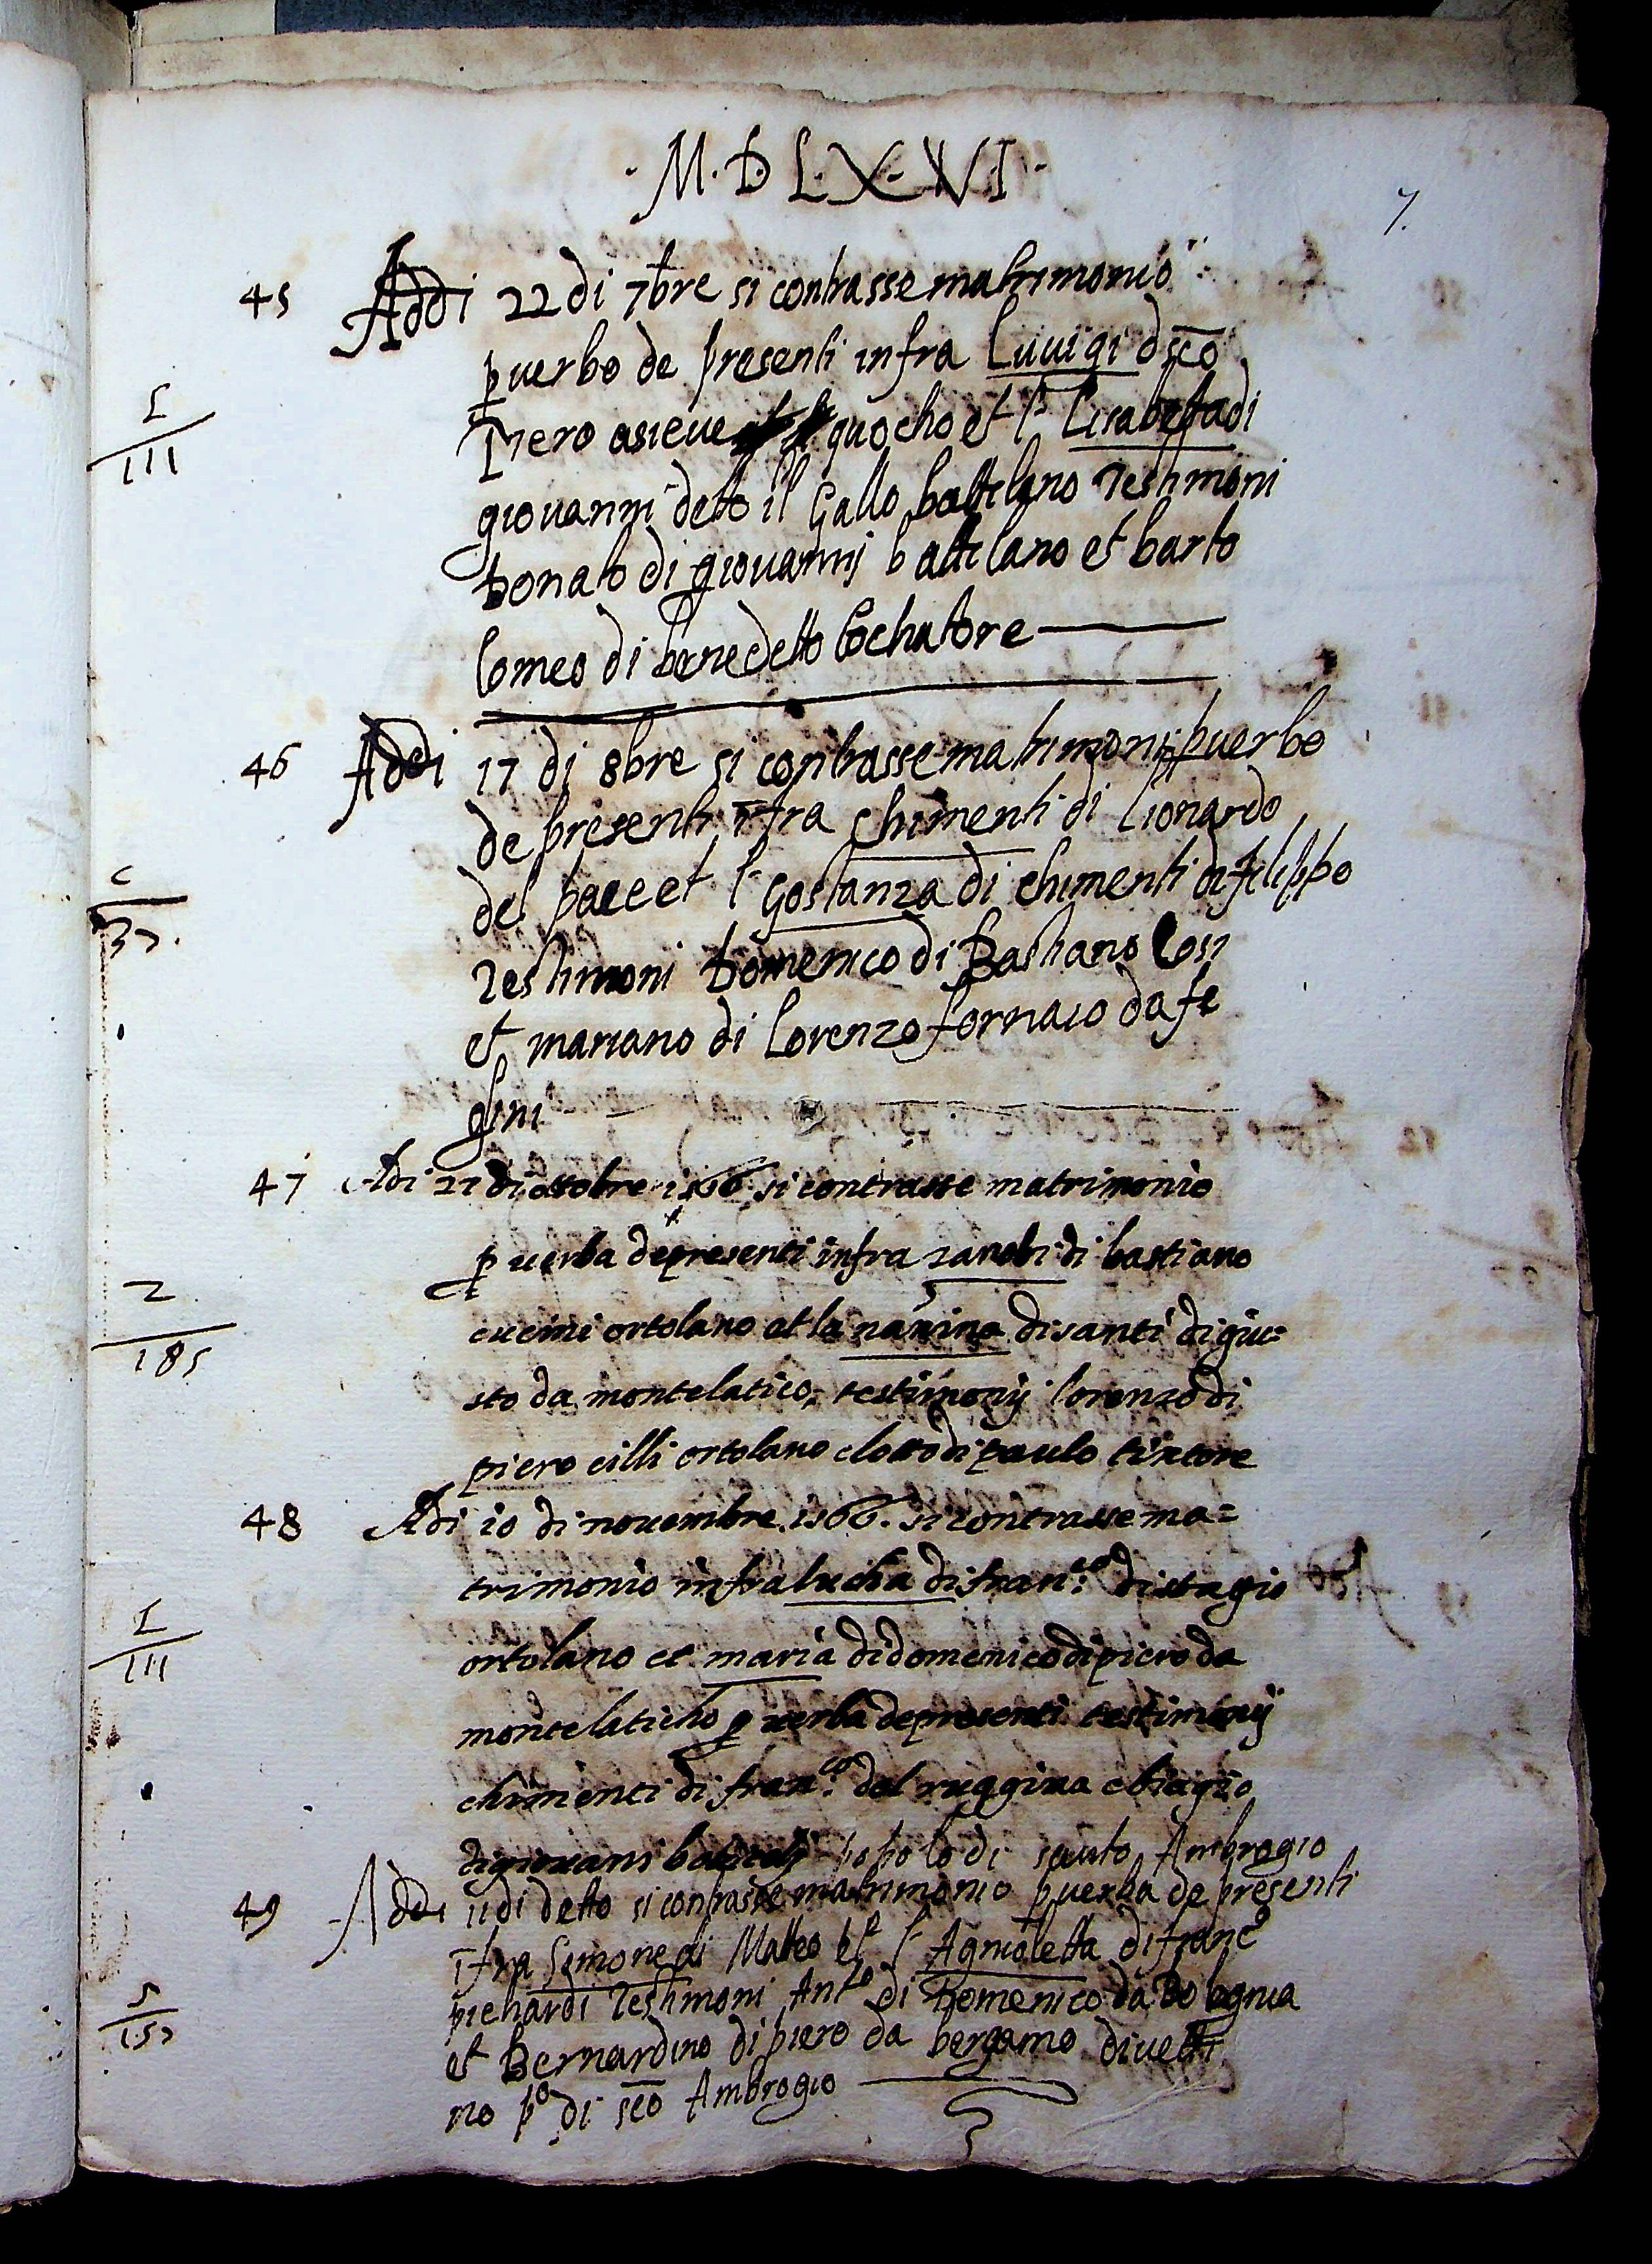 · M · D · L · X · VI ·
7.
45 Addi 22 di 7bre si contrasse matrimonio
p uerbo de presenti infra Luuigi di sco
Piero asieue quocho et la Lisabetta di
giouanni detto il Gallo battilano Testimoni
Donato di giouannj battilano et barto
lomeo di benedetto
L
111
46 Addi 17 di 8bre si contrasse matrimonio p uerbo
de presenti ifra Chimenti di Lionardo
del pace et la Gostanza di chimenti di filippo
Testimoni Domenico di Bastiano Cosi
et mariano di Lorenzo fornaio da fe
ghini
C
37.
47 Adi 21 di ottobre 1566 si contrasse matrimonio
p uerba de presenti infra zanobi di bastiano
cucini ortolano et la nanina di santi di giu=
sto da montelatico, testimonij lorenzo di
piero cilli ortolano e lotto di paulo tintore
Z
185
48 Adi 10 di nouembre 1566. si contrasse ma=
trimonio infra lucha di fran.co di stagio
ortolano et maria di domenico di piero da
montelaticho p uerba de presenti testimonij
chimenti di fran.co del ruggina e biagio
di giouani popolo di santo Ambrogio
L
111
49 Addi 11 di detto si contrasse matrimonio p uerba de presenti
ifra Simone di Matteo et la Agnioletta di franc.o
pichardi Testimoni Ant.o di Domenico da Bolognia
et Bernardino di piero da bergamo diuetti
no p.o di sco Ambrogio
S
157